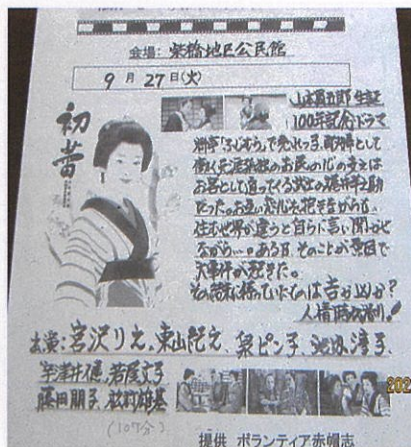 会場：築橋地区公民館
9月27日(火)
初蕾
山本周五郎 生誕
100年記念ドラマ
料亭「ふじむら」で売れっ子、酌婦として
働く天涯孤独のお民の心の支えは
お客として通ってくる武士の
だった。お互い
住む世界が違うと自らに言い聞かせ
ながら…。ある日、そのことが原因で
大事件が起きた。
その結末に待っていたのは吉か凶か？
人情時代劇！
出演：宮沢りえ、東山紀之、泉ピン子、池内淳子、
宇津井健、若尾文子
藤田朋子、
(107分)
202
提供 ボランティア赤帽志